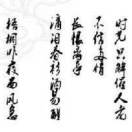 时光只解催人老
不信多情
長恨离亭
滴泪春衫酒易醒
梧桐昨夜西风急